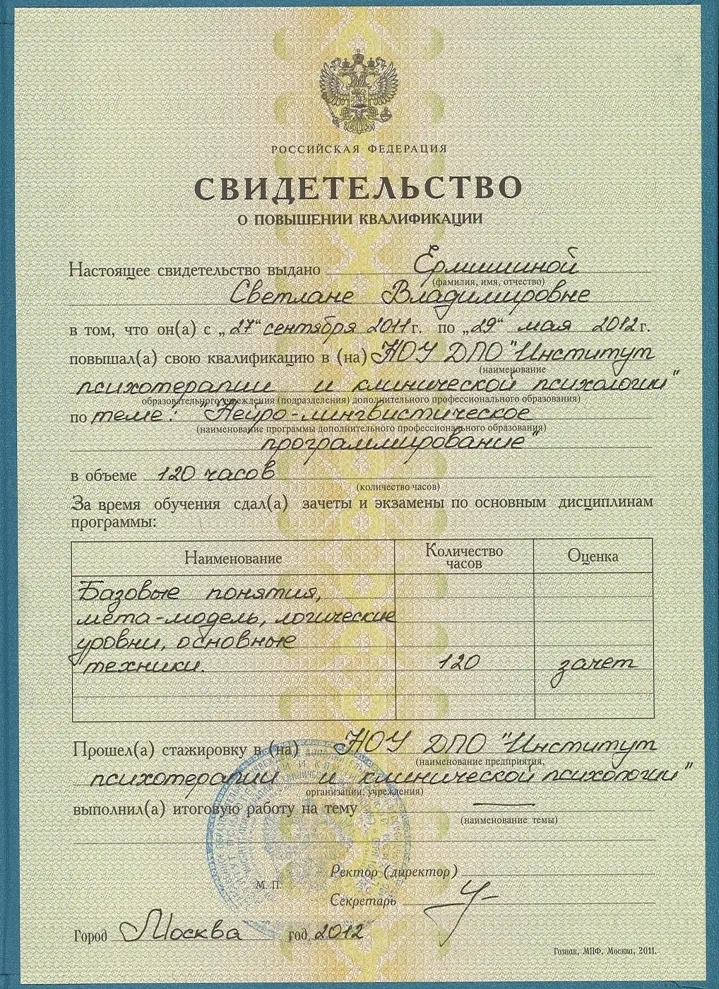 РОССИЙСКАЯ ФЕДЕРАЦИЯ
СВИДЕТЕЛЬСТВО
О ПОВЫШЕНИИ КВАЛИФИКАЦИИ
Настоящее свидетельство выдано Ермишиной
(фамилия, имя, отчество)
Светлане Владимировне
в том, что он(а) с „27“ сентября 2011 г. по „29“ мая 2012 г.
повышал(а) свою квалификацию в (на) НОУ ДПО "Институт
(наименование
психотерапии и клинической психологии"
образовательного учреждения (подразделения) дополнительного профессионального образования)
по теме: "Нейро-лингвистическое
(наименование программы дополнительного профессионального образования)
программирование"
в объеме 120 часов
(количество часов)
За время обучения сдал(а) зачеты и экзамены по основным дисциплинам
программы:
Наименование Количество часов Оценка
Базовые понятия,
мета-модель, логические
уровни, основные
техники. 120 зачет
Прошел(а) стажировку в (на) НОУ ДПО "Институт
(наименование предприятия,
психотерапии и клинической психологии"
организации, учреждения)
выполнил(а) итоговую работу на тему —
(наименование темы)
Ректор (директор)
М. П.
Секретарь
Город Москва год 2012
Гознак, МПФ, Москва, 2011.